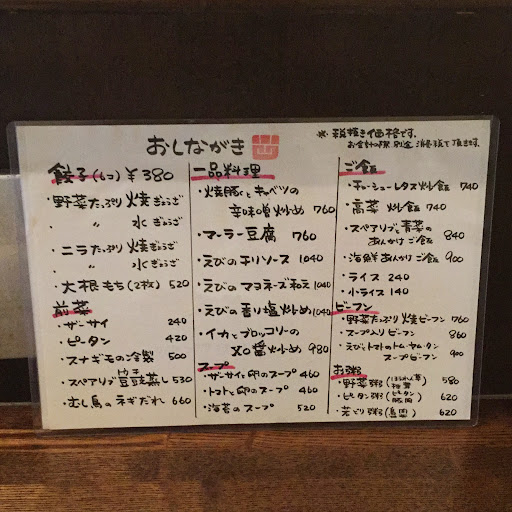 おしながき
※ 税抜き価格です。
お会計の際、別途、消費税て頂きます。
餃子(6コ) ¥380
・野菜たっぷり焼ぎょうざ
・ 〃 水ぎょうざ
・ニラたっぷり焼ぎょうざ
・ 〃 水ぎょうざ
・大根もち(2枚) 520
前菜
・ザーサイ 240
・ピータン 420
・スナギモの冷製 500
・スペアリブ豆豉蒸し 530
・むし鳥のネギだれ 660
一品料理
・焼豚とキャベツの
辛味噌炒め 760
・マーラー豆腐 760
・えびのチリソース 1040
・えびのマヨネーズ和え 1040
・えびの香り塩炒め 1040
・イカとブロッコリーの
XO醤炒め 980
スープ
・ザーサイと卵のスープ 460
・トマトと卵のスープ 460
・海苔のスープ 520
ご飯
・チャーシューレタス炒飯 740
・高菜炒飯 740
・スペアリブと青菜の
あんかけご飯 840
・海鮮あんかけご飯 900
・ライス 240
・小ライス 140
ビーフン
・野菜たっぷり焼ビーフン 760
・スープ入りビーフン 860
・えびトマトのトムヤムクン
スープビーフン 900
お粥
・野菜粥(ほうれん草 580
・ピータン粥(ピータン 豚肉) 620
・若どり粥 620